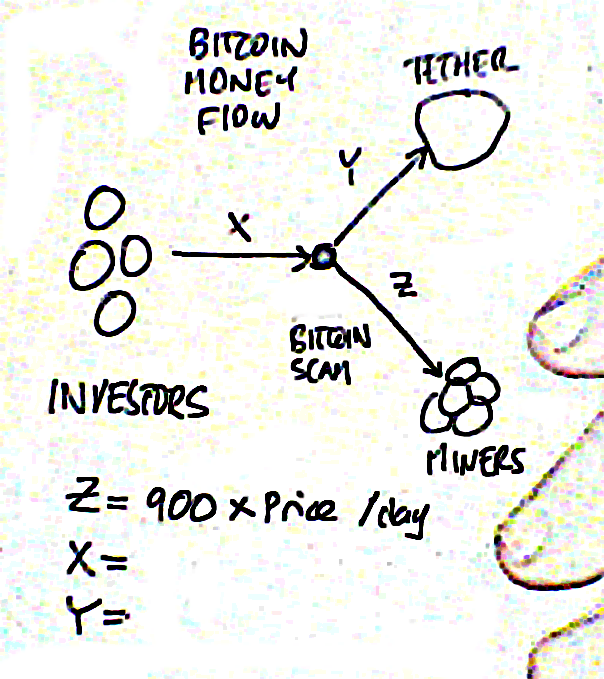 BITCOIN
MONEY
FLOW
TETHER
Y
X
Z
BITCOIN
SCAM
INVESTORS
MINERS
Z = 900 x Price /day
X =
Y =